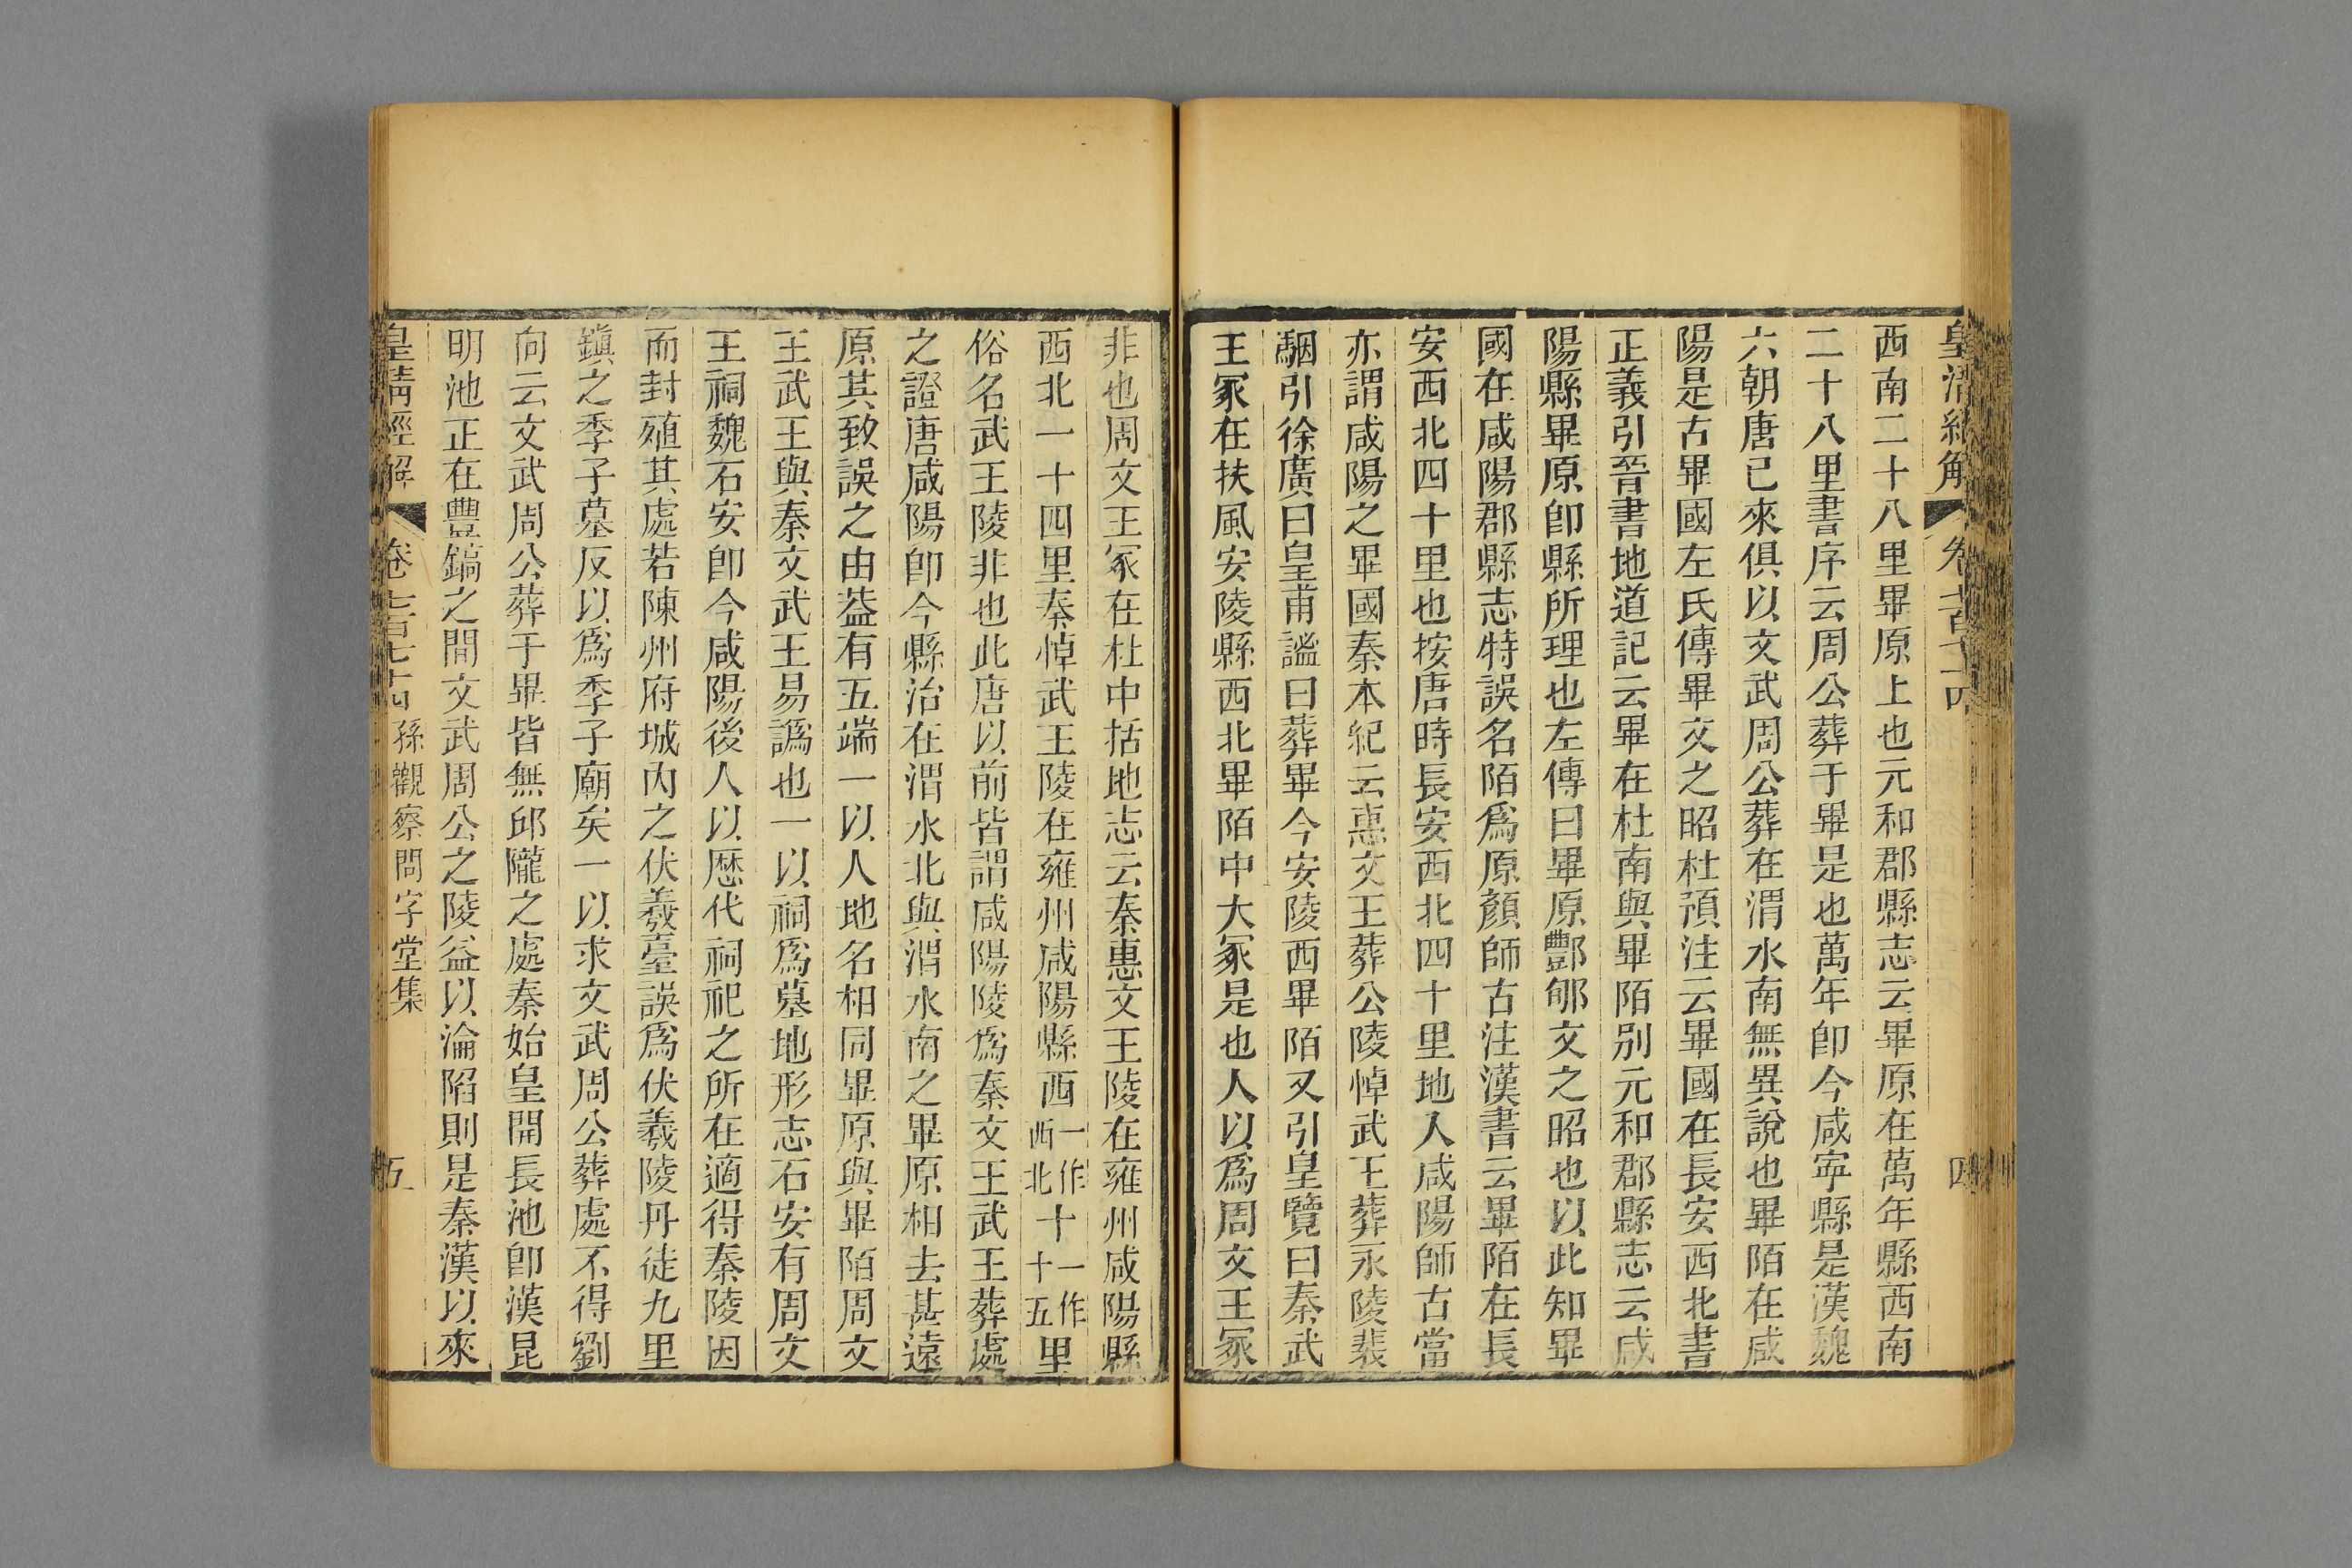 皇清經解 卷七百七十四 四
西南二十八里畢原上也元和郡縣志云畢原在萬年縣西南
二十八里書序云周公葬于畢是也萬年卽今咸寧縣是漢魏
六朝唐已來俱以文武周公葬在渭水南無異說也畢陌在咸
陽是古畢國左氏傳畢文之昭杜預注云畢國在長安西北書
正義引晉書地道記云畢在杜南與畢陌別元和郡縣志云咸
陽縣畢原卽縣所理也左傳曰畢原酆郇文之昭也以此知畢
國在咸陽郡縣志特誤名陌爲原顏師古注漢書云畢陌在長
安西北四十里也按唐時長安西北四十里地入咸陽師古當
亦謂咸陽之畢國秦本紀云惠文王葬公陵悼武王葬永陵裴
駰引徐廣曰皇甫謐曰葬畢今安陵西畢陌又引皇覽曰秦武
王冢在扶風安陵縣西北畢陌中大冢是也人以爲周文王冢
非也周文王冢在杜中括地志云秦惠文王陵在雍州咸陽縣
西北一十四里秦悼武王陵在雍州咸陽縣西一作西北十一作十五里
俗名武王陵非也此唐以前皆謂咸陽陵爲秦文王武王葬處
之證唐咸陽卽今縣治在渭水北與渭水南之畢原相去甚遠
原其致誤之由葢有五端一以人地名相同畢原與畢陌周文
王武王與秦文武王易譌也一以祠爲墓地形志石安有周文
王祠魏石安卽今咸陽後人以厯代祠祀之所在適得秦陵因
而封殖其處若陳州府城內之伏羲臺誤爲伏羲陵丹徒九里
鎮之季子墓反以爲季子廟矣一以求文武周公葬處不得劉
向云文武周公葬于畢皆無邱隴之處秦始皇開長池卽漢昆
明池正在豐鎬之間文武周公之陵益以淪陷則是秦漢以來
皇清經解 卷七百七十四 孫觀察問字堂集 五